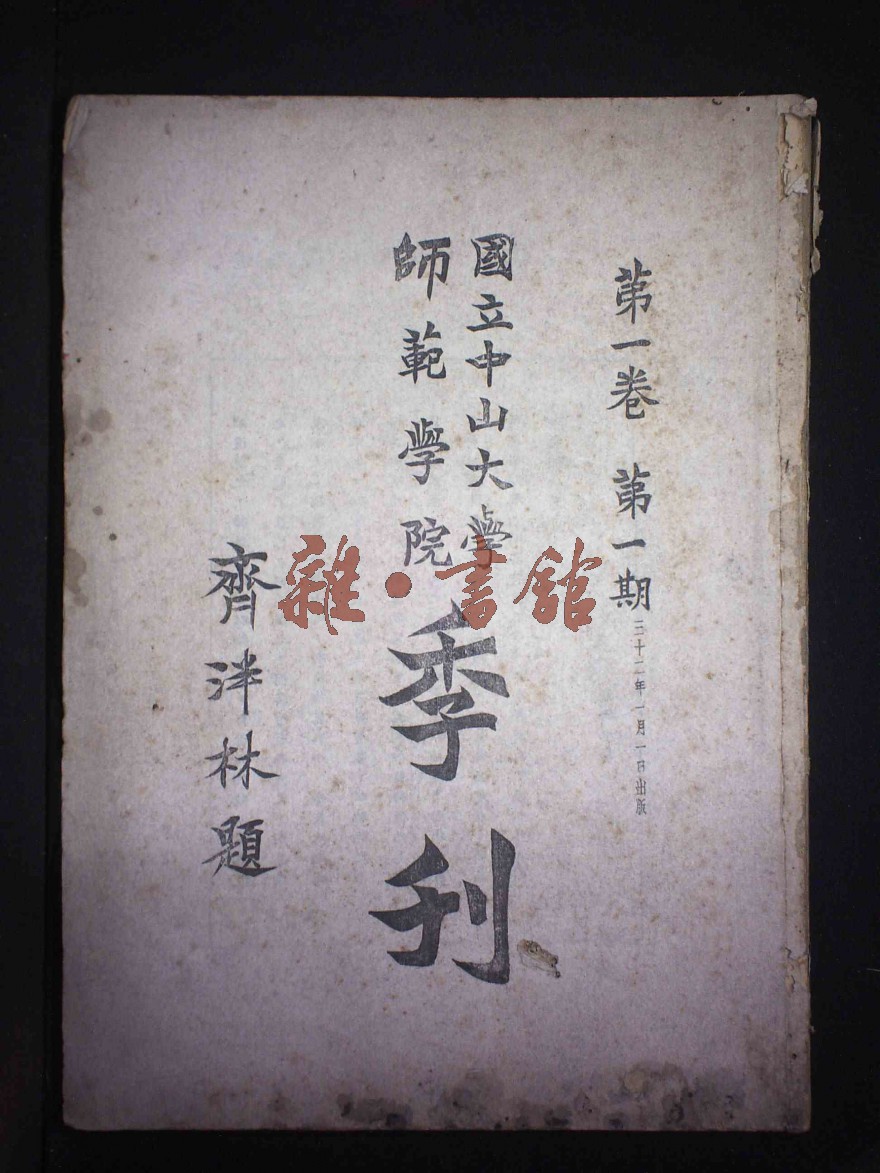 第一卷 第一期
三十二年一月一日出版
國立中山大學
師範學院
季刊
齊泮林題
雜·書館